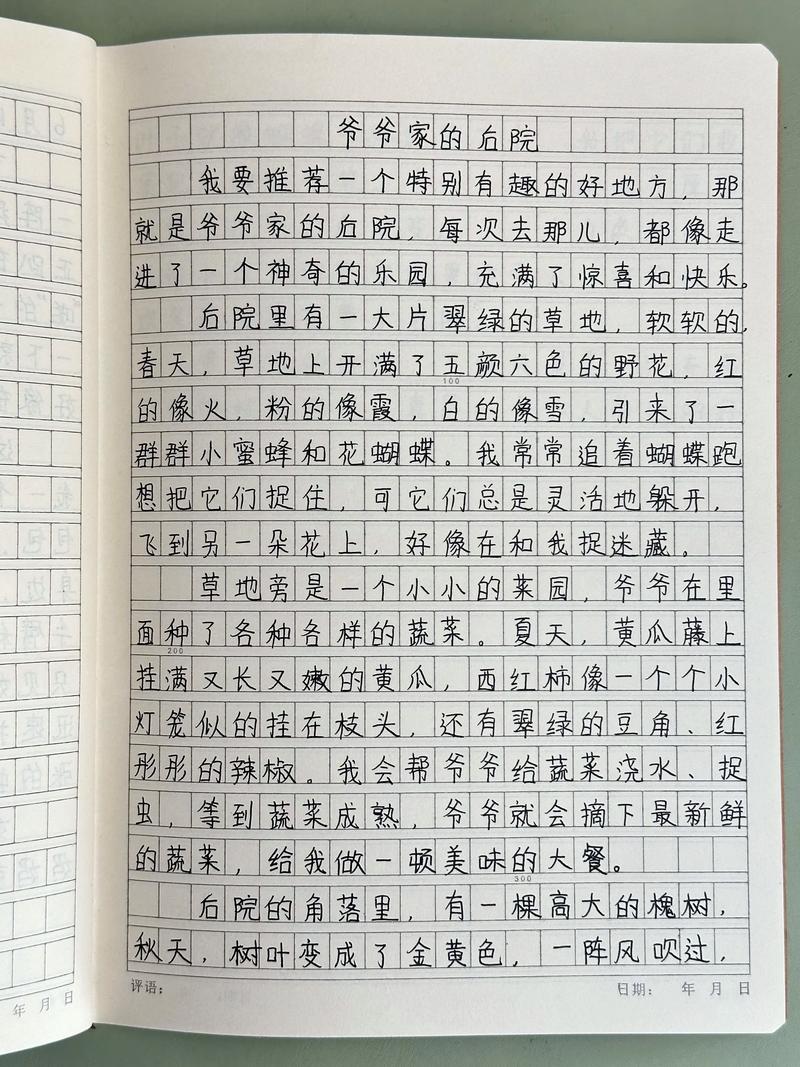 爷爷家的后院
我要推荐一个特别有趣的好地方，那
就是爷爷家的后院，每次去那儿，都像走
进了一个神奇的乐园，充满了惊喜和快乐。
后院里有一大片翠绿的草地，软软的，
春天，草地上开满了五颜六色的野花，红
100
的像火，粉的像霞，白的像雪，引来了一
群群小蜜蜂和花蝴蝶。我常常追着蝴蝶跑
想把它们捉住，可它们总是灵活地躲开，
飞到另一朵花上，好像在和我捉迷藏。
草地旁是一个小小的菜园，爷爷在里
面种了各种各样的蔬菜。夏天，黄瓜藤上
200
挂满又长又嫩的黄瓜，西红柿像一个个小
灯笼似的挂在枝头，还有翠绿的豆角、红
彤彤的辣椒。我会帮爷爷给蔬菜浇水、捉
虫，等到蔬菜成熟，爷爷就会摘下最新鲜
的蔬菜，给我做一顿美味的大餐。
300
后院的角落里，有一棵高大的槐树，
秋天，树叶变成了金黄色，一阵风吹过，
评语： 日期： 年 月 日
年 月 日